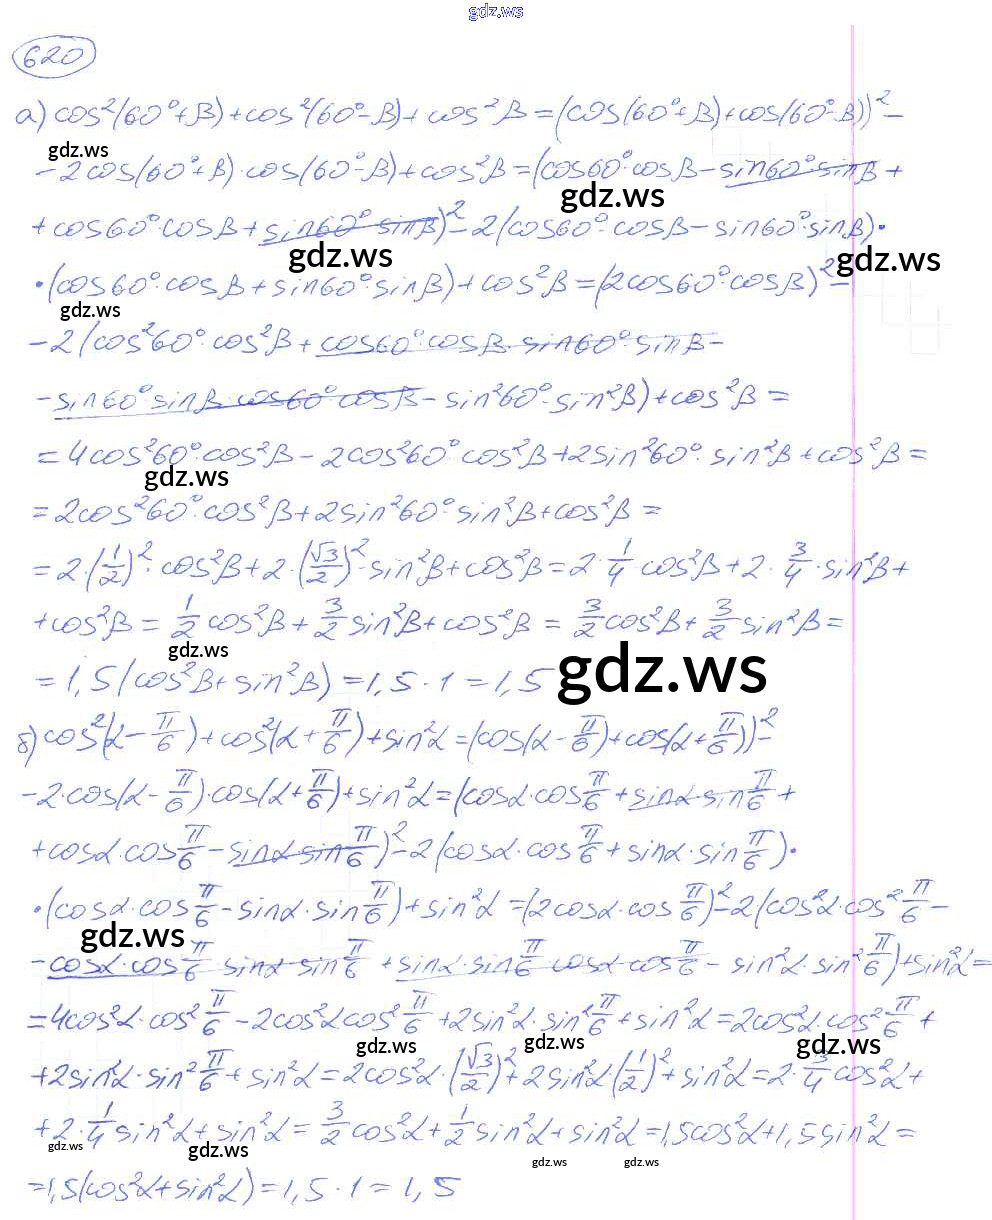 gdz.ws
620
а) cos²(60°+β)+cos²(60°-β)+cos²β=(cos(60°+β)+cos(60°-β))²-
gdz.ws
-2cos(60°+β)·cos(60°-β)+cos²β=(cos60°·cosβ-sin60°·sinβ+
gdz.ws
+cos60°·cosβ+sin60°·sinβ)²-2(cos60°·cosβ-sin60°·sinβ)·
gdz.ws gdz.ws
·(cos60°·cosβ+sin60°·sinβ)+cos²β=(2cos60°·cosβ)²-
gdz.ws
-2(cos²60°·cos²β+cos60°·cosβ·sin60°·sinβ-
-sin60°·sinβ·cos60°·cosβ-sin²60°·sin²β)+cos²β=
=4cos²60°·cos²β-2cos²60°·cos²β+2sin²60°·sin²β+cos²β=
gdz.ws
=2cos²60°·cos²β+2sin²60°·sin²β+cos²β=
=2·(1/2)²·cos²β+2·(√3/2)²·sin²β+cos²β=2·1/4 cos²β+2·3/4·sin²β+
+cos²β=1/2 cos²β+3/2 sin²β+cos²β=3/2 cos²β+3/2 sin²β=
gdz.ws gdz.ws
=1,5(cos²β+sin²β)=1,5·1=1,5
б) cos²(α-π/6)+cos²(α+π/6)+sin²α=(cos(α-π/6)+cos(α+π/6))²-
-2·cos(α-π/6)·cos(α+π/6)+sin²α=(cosα·cosπ/6+sinα·sinπ/6+
+cosα·cosπ/6-sinα·sinπ/6)²-2(cosα·cosπ/6+sinα·sinπ/6)·
·(cosα·cosπ/6-sinα·sinπ/6)+sin²α=(2cosα·cosπ/6)²-2(cos²α·cos²π/6-
gdz.ws
-cosα·cosπ/6·sinα·sinπ/6+sinα·sinπ/6·cosα·cosπ/6-sin²α·sin²π/6)+sin²α=
=4cos²α·cos²π/6-2cos²αcos²π/6+2sin²α·sin²π/6+sin²α=2cos²α·cos²π/6+
gdz.ws gdz.ws gdz.ws
+2sin²α·sin²π/6+sin²α=2cos²α·(√3/2)²+2sin²α·(1/2)²+sin²α=2·3/4 cos²α+
+2·1/4 sin²α+sin²α=3/2 cos²α+1/2 sin²α+sin²α=1,5cos²α+1,5sin²α=
gdz.ws gdz.ws gdz.ws gdz.ws
=1,5(cos²α+sin²α)=1,5·1=1,5